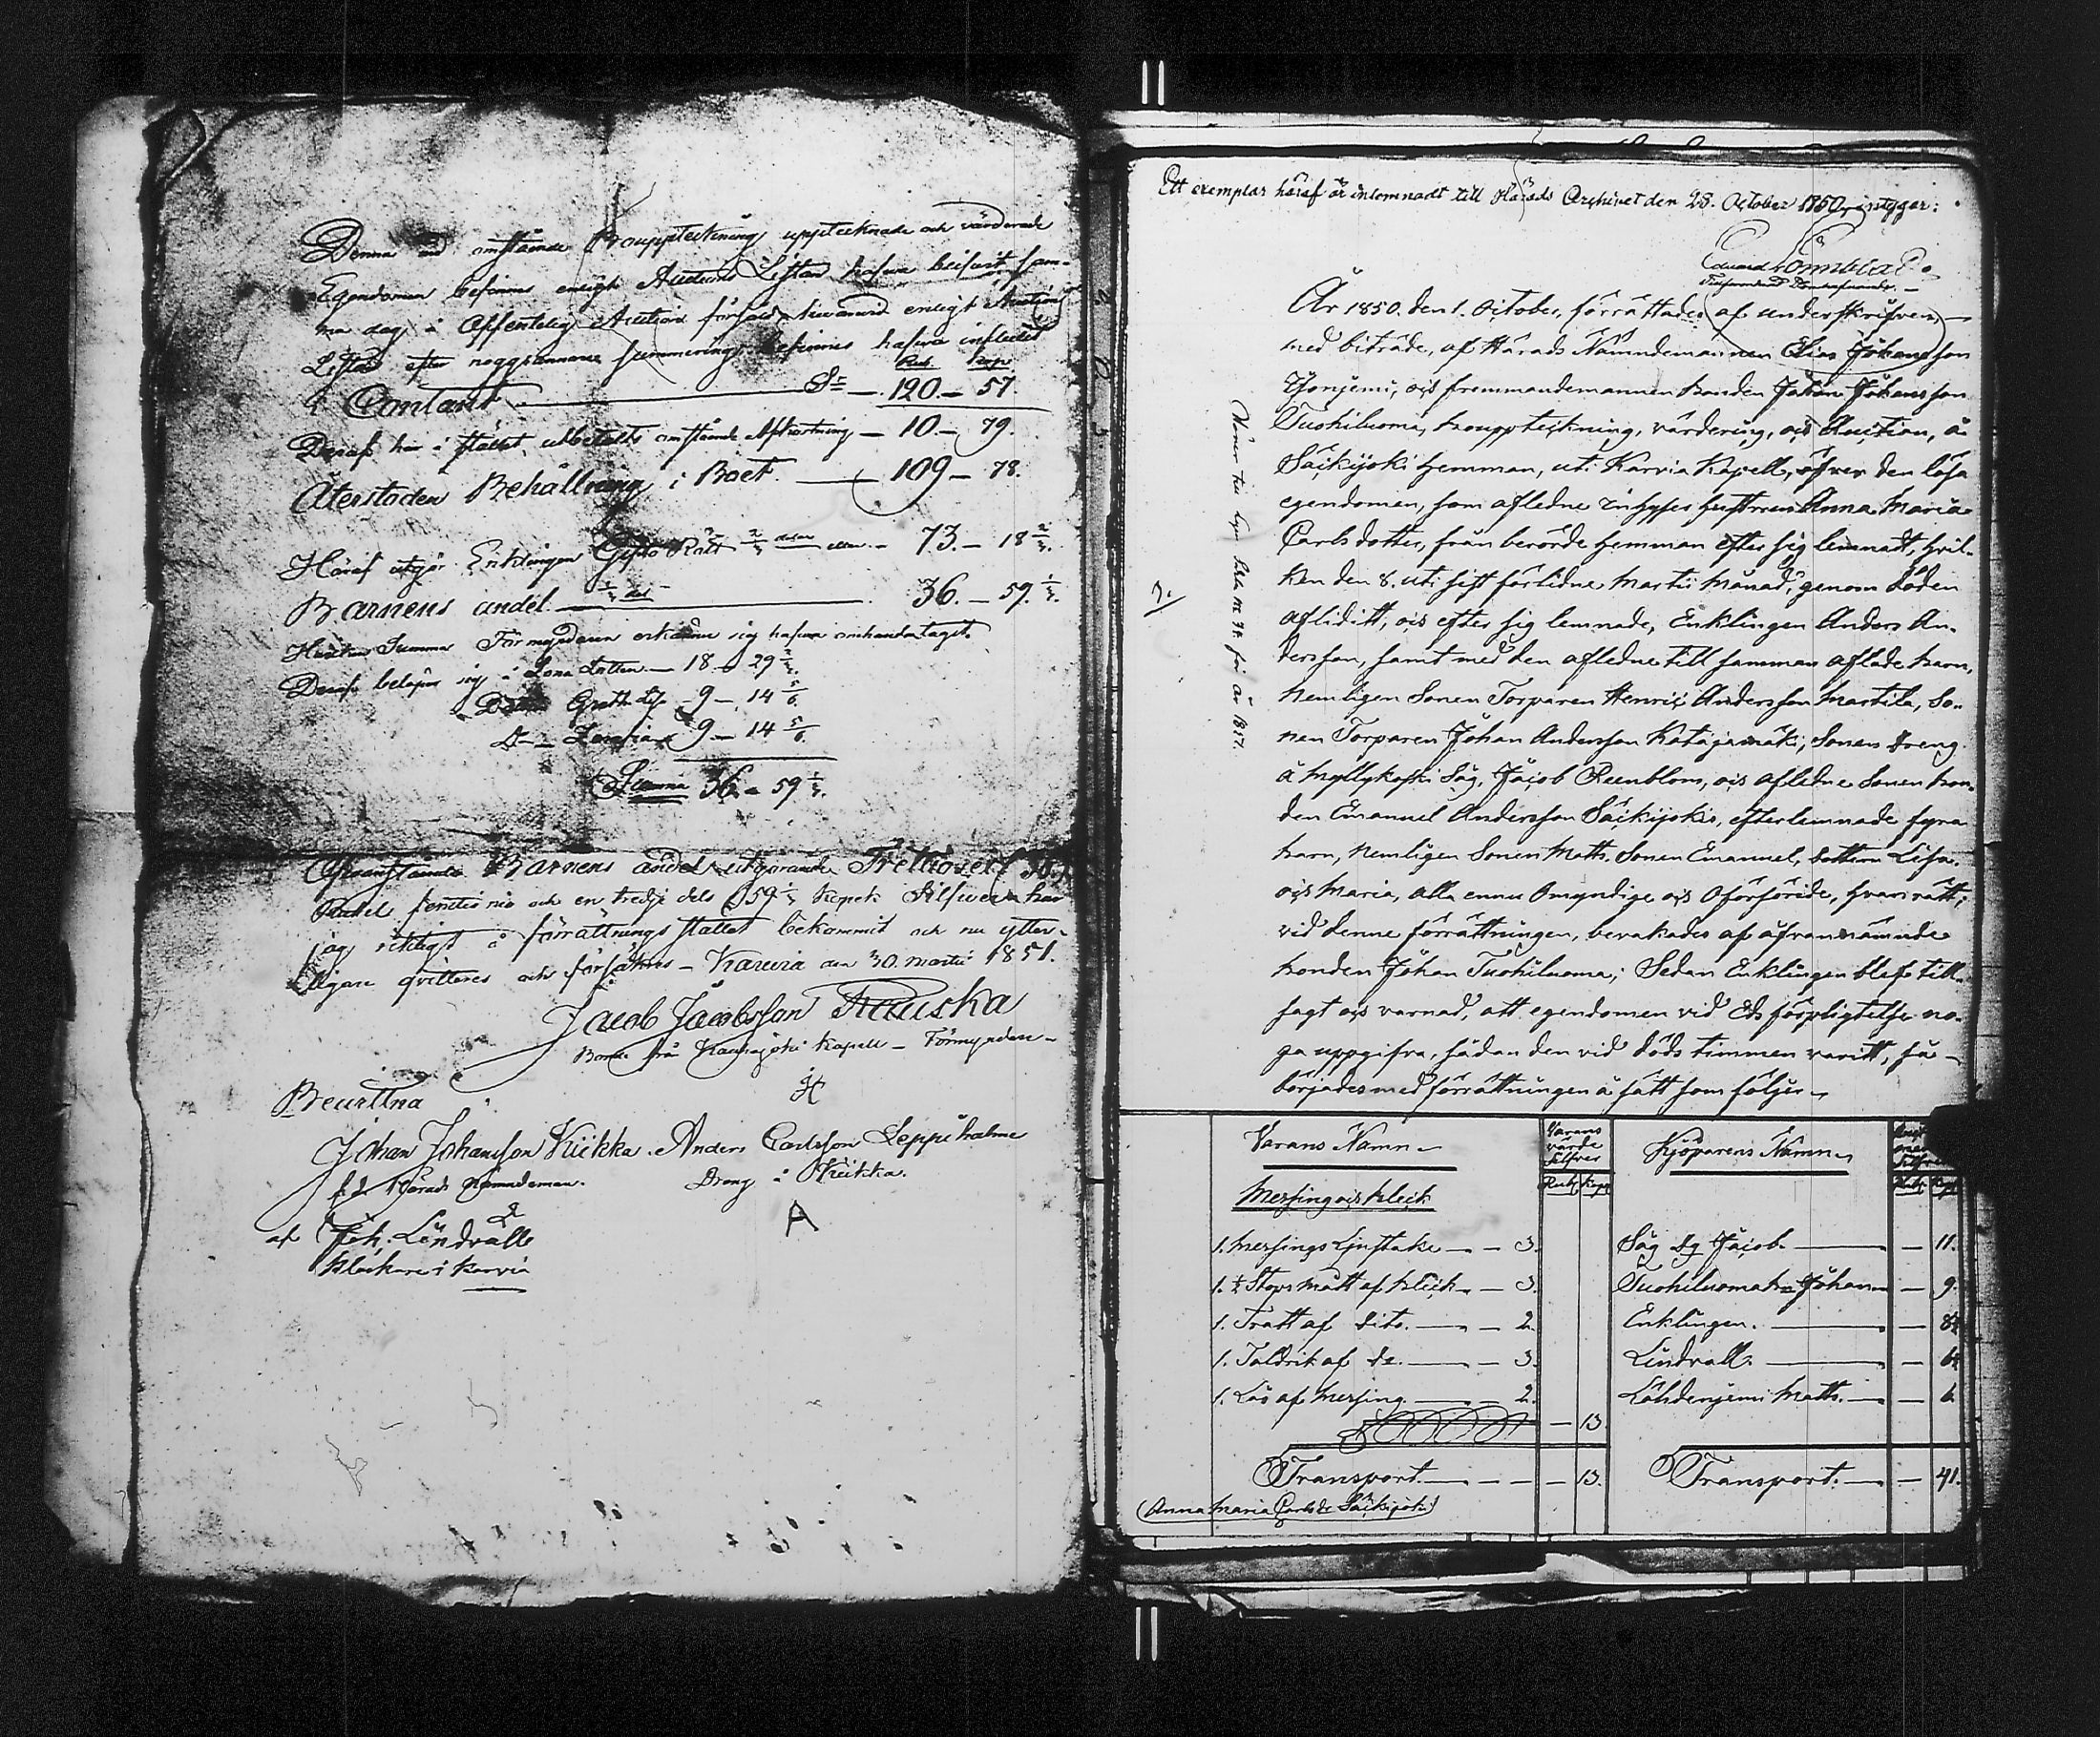 Denna vid omstående Bouppteckning upptecknade och värderade
Egendomen befinnes enligt Auctions Listan hafva blifvit sam-
ma dag å Offentelig Auction försåld hvarvid enligt Auctions
Listan efter noggrannare summering befinnes hafva influtit
Rub. Kop.
i Contant Sr — 120. — 57.
Deraf har i stället utbetalts omstående Afkortning — 10. — 79.
Återstoden Behållning i Boet. — 109 — 78.
Häraf utgör Enklingens Gifto Rätt 2/3 delar eller — 73. — 18 2/3.
Barnens andel 1/3 del 36. — 59 1/3.
Hvilken Summa Förmyndaren erkänner sig hafva omhändertagit.
Deraf belöper sig å Sonen — 18 — 29 2/3.
Dottren Greth. 9 — 14 5/6.
D— 9 — 14 5/6.
Summa 36 — 59 1/3.
Ofvanstående Barnens andel utgörande Trettiosex 36.
Rubel femtio nio och en tredje dels 59 1/3 Kopek Silfver har
jag riktigt å förrättnings stället bekommit och nu ytter-
ligare qvitteres och försäkras — Karvia den 30. Martii 1851.
Jacob Jacobsson Rauska
Bonde från Kauhajoki Kapell — Förmyndare —
Bevittna
Johan Johansson Kiikka. Anders Carlsson Leppihalme
f.d. Härads Nämndeman. Dreng i Kiikka.
A
af Joh. Lindvall
Klockare i Karvia
Ett exemplar häraf är inlemnadt till Härads Archivet den 28. October 1850, intygar:
Eduard Lönnblad
År 1850. den 1. October, förrättades af underskrifven,
med biträde, af Härads Nämndemannen Elias Johansson
och fremmandemannen Bonden Johan Johansson
Tuohiluoma, bouppteckning, värdering, och Auction, å
Säckijoki hemman, uti Karvia Kapell, öfver den lösa
egendomen, som aflidne Inhyses hustrun Anna Maria
Carlsdotter, från berörde hemman efter sig lemnadt, hvil-
ken den 8. uti sist förlidne Martii Månad, genom döden
afliditt, och efter sig lemnade, Enklingen Anders An-
dersson, samt med den aflidne till samman aflade barn,
nemligen Sonen Torparen Henric Andersson Martila, So-
nen Torparen Johan Andersson Katajamäki, Sonen dreng
å Myllykoski Såg, Jacob Reenblom, och aflidne Sonen bon-
den Emanuel Andersson Säckijokis, efterlemnade fyra
barn, nemligen Sonen Matts, Sonen Emanuel, dottren Lisa,
och Maria, alla ennu omyndige och oförsörjde, hvars rätt,
vid denne förrättningen, bevakades af ofvannämnde
bonden Johan Tuohiluoma; Sedan Enklingen blef till-
sagt och varnad, att egendomen vid Eds förpligtelse no-
ga uppgifva, sådan den vid döds timmen varitt, så
börjades med förrättningen å sätt som följer —
3.
för år 1847.
Varans Namn Varans värde Silfver Kjöparens Namn
Rub. Kop. Rub. Kop.
Messing och bleck
1. Messings Ljustake — 3. Såg dg Jacob — 11.
1. 1/2 Stops mått af bleck — 3. Tuohiluoma Johan — 9.
1. Tratt af dito. — 2. Enklingen. — 8 1/2
1. Taldrik af do. — 3. Lindvall. — 6 1/2
1. Lås af Messing — 2. Matts. — 6.
— 13.
Transport — 13. Transport. — 41.
(Anna Maria Carlsdr Säckijoki)